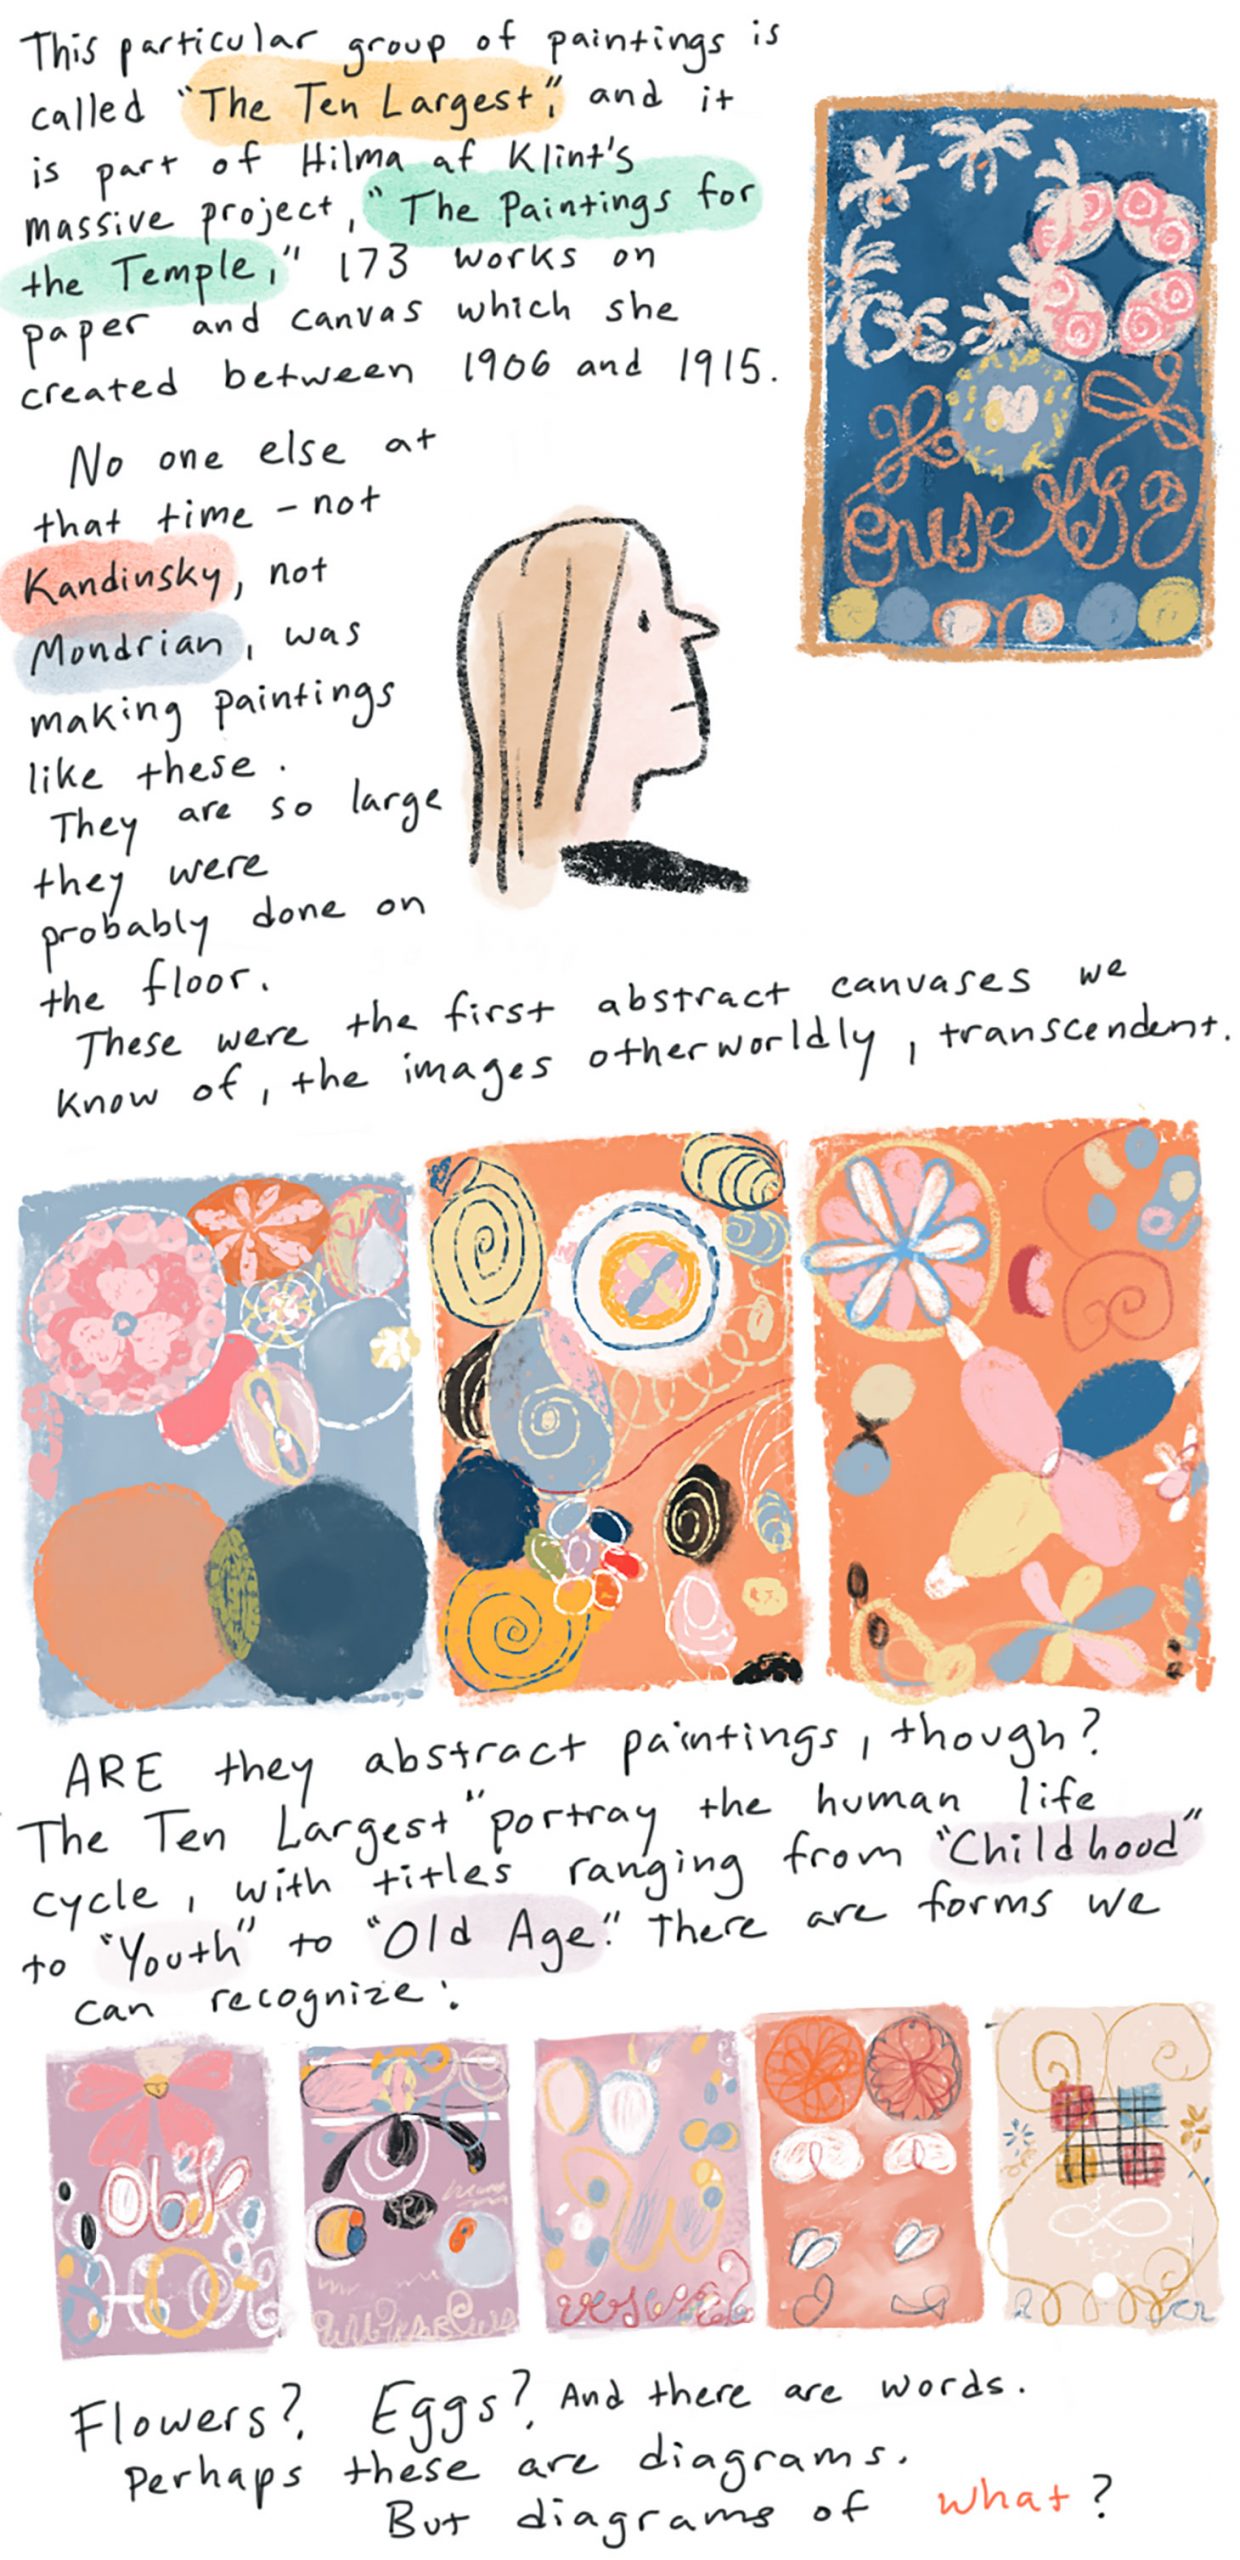 This particular group of paintings is
called "The Ten Largest", and it
is part of Hilma af Klint's
massive project, "The Paintings for
the Temple," 173 works on
paper and canvas which she
created between 1906 and 1915.
No one else at
that time - not
Kandinsky, not
Mondrian, was
making paintings
like these.
They are so large
they were
probably done on
the floor.
These were the first abstract canvases we
know of, the images otherworldly, transcendent.
ARE they abstract paintings, though?
The Ten Largest" portray the human life
cycle, with titles ranging from "Childhood"
to "Youth" to "Old Age." There are forms we
can recognize:
Flowers? Eggs? And there are words.
Perhaps these are diagrams.
But diagrams of what?